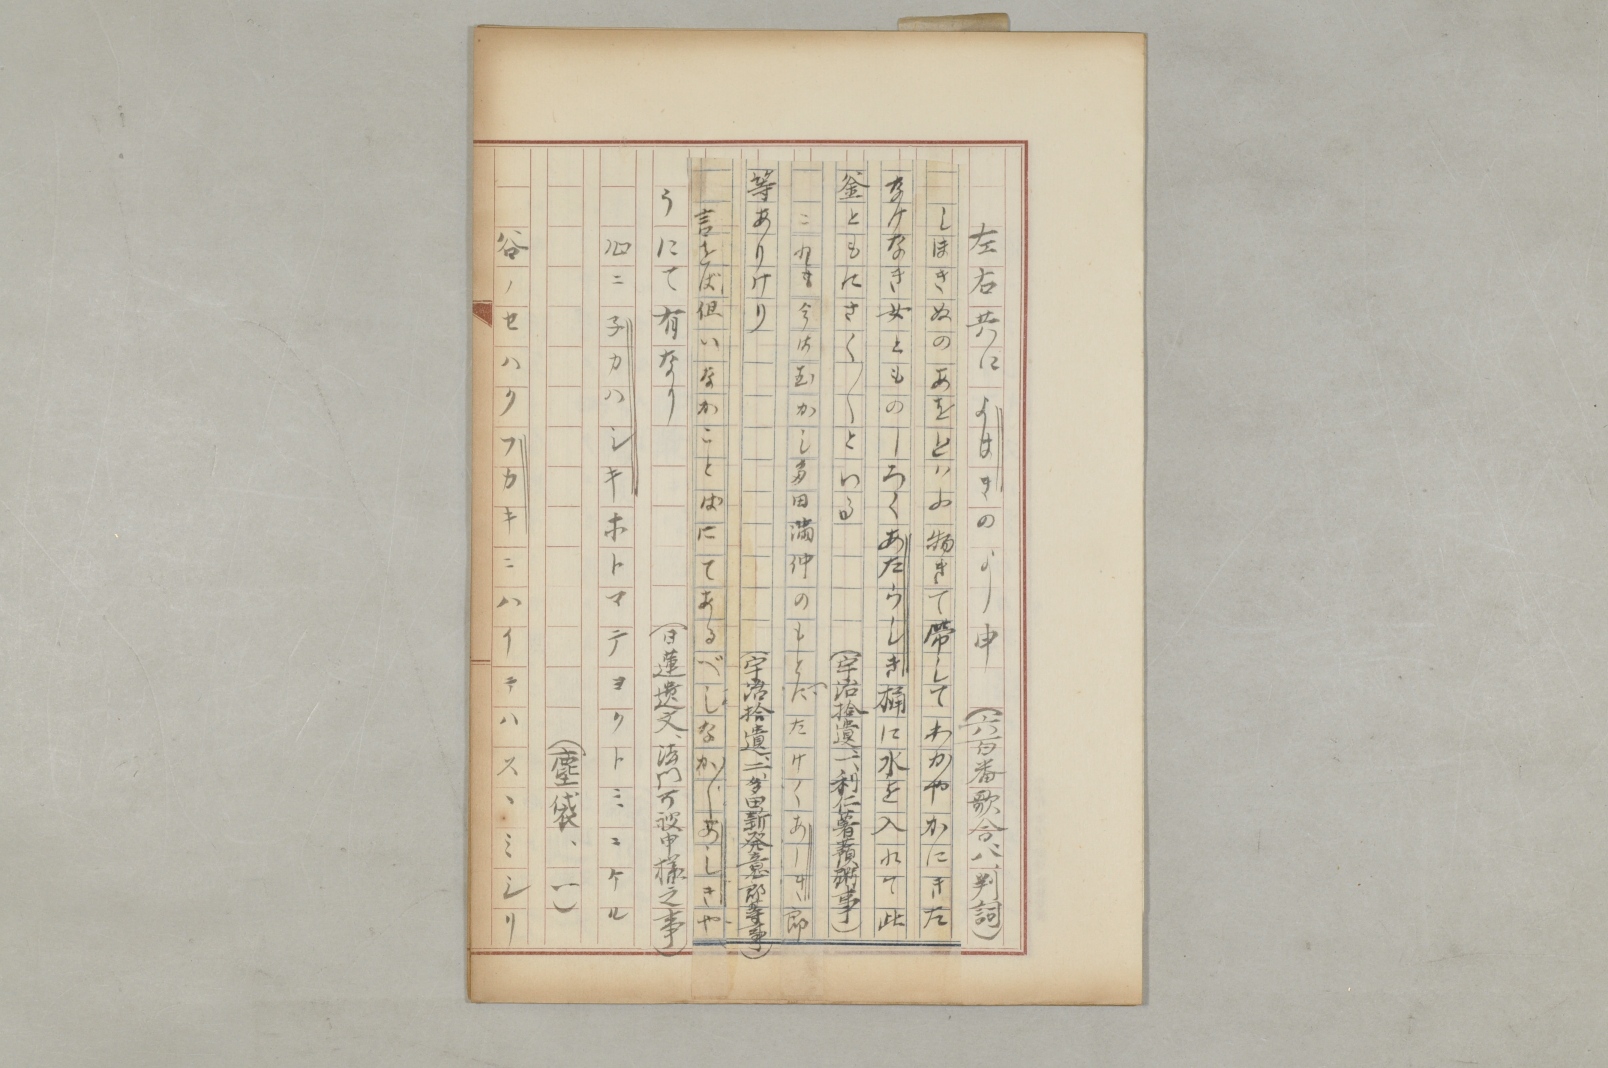 左右共によはきのよし申
(六百番歌合八、判詞)
しほきぬのあをといふ物きて帶してわかやかにきた
なけなき女とものしろくあたらしき桶に水を入れて此
釜ともにさく〳〵といる
(宇治拾遺、一、利仁薯蕷粥事)
これも今はむかし多田満仲のもとにたけくあしき郎
等ありけり
(宇治拾遺、三、多田新発意郎等事)
言をば但いなかことばにてあるべしなか〳〵あしきや
うにて有なり
(日蓮遺文、法門可被申様之事)
心ニ子カハシキホトマテヨクトミコケル
(塵袋、一)
谷ノセハクフカキニハイテハスヽミシリ